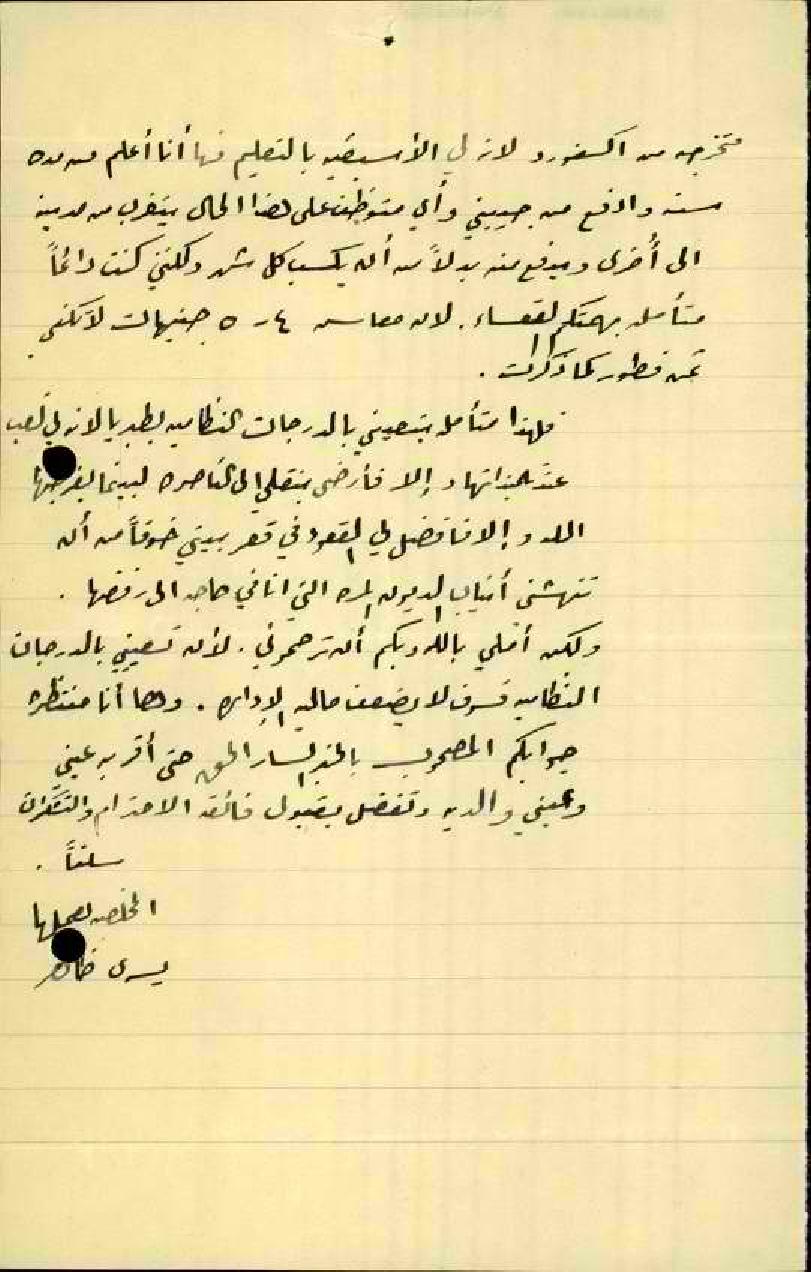 متخرجه من اكسفورد لان لي الأسبقيه بالتعليم فها أنا أعلم من مده
سنه وادفع من جيبي وأي متوظف على هذا الحال يتغرب من مدينه
الى أُخرى ويدفع منه بدلاً من أن يكسب كل شهر ولكنني كنت دائماً
متأمله بهمتكم القعساء. لان معاش ٤ ر ٥ جنيهات لا تكفي
ثمن فطور كما ذكرت.
فلهذا متأمله بتعييني بالدرجات النظاميه لان لي تعب
عند الله و إلا فأرضى بنقلي الى الناصره لبينما يفرجها
الله و إلا فافضل لي القعود في قعر بيتي خوفاً من أن
تنهشني أنياب الديون المره التي انا في حاجه الى رفضها.
ولكن أملي بالله وبكم أن ترحموني. لأن تعييني بالدرجات
النظاميه فسوف لا يضعف ماليه الإداره. وها أنا منتظره
جوابكم المصحوب بالخبر السار الحق حتى أقر به عيني
وعيني والديه وتفضل بقبول فائقه الاحترام والتشكرات
سلفاً.
المخلصه لعملها
يسرى ظاهر